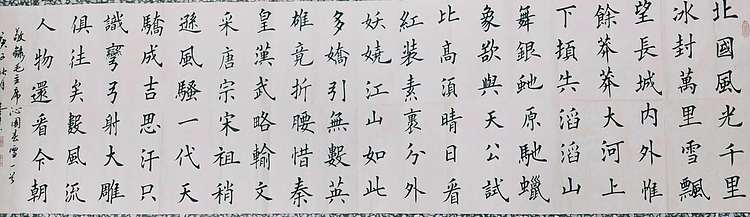 北國風光千里
冰封萬里雪飄
望長城內外惟
餘莽莽大河上
下頓失滔滔山
舞銀蛇原馳蠟
象欲與天公試
比高須晴日看
紅裝素裹分外
妖嬈江山如此
多嬌引無數英
雄竟折腰惜秦
皇漢武略輸文
采唐宗宋祖稍
遜風騷一代天
驕成吉思汗只
識彎弓射大雕
俱往矣數風流
人物還看今朝
敬錄毛主席沁園春雪一首